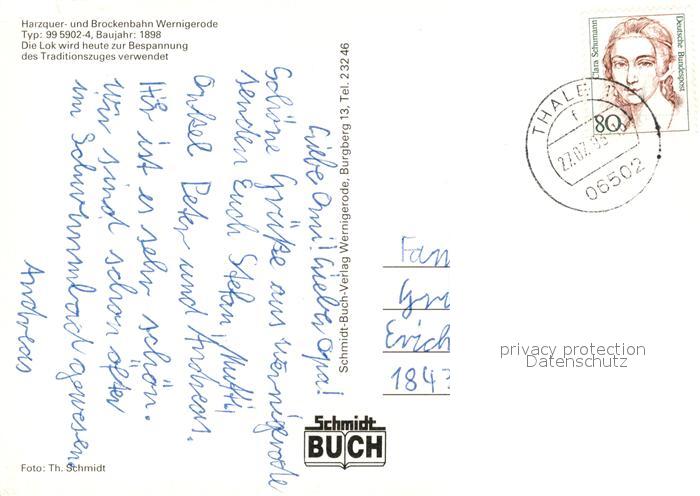 Harzquer- und Brockenbahn Wernigerode
Typ: 99 5902-4, Baujahr: 1898
Die Lok wird heute zur Bespannung
des Traditionszuges verwendet
Liebe Omi! Lieber Opa!
Schöne Grüße aus Wernigerode
senden Euch Stefan, Mutti,
Onkel Peter und Andreas.
Hir ist es sehr schön.
Wir sind schon öfter
im Schwimmbad gewesen.
Andreas
Foto: Th. Schmidt
Schmidt-Buch-Verlag Wernigerode, Burgberg 13, Tel. 2 32 46
Schmidt
BUCH
Deutsche Bundespost
Clara Schumann
80
THALE
27.07.93
06502
Fam
Erich
184
privacy protection
Datenschutz